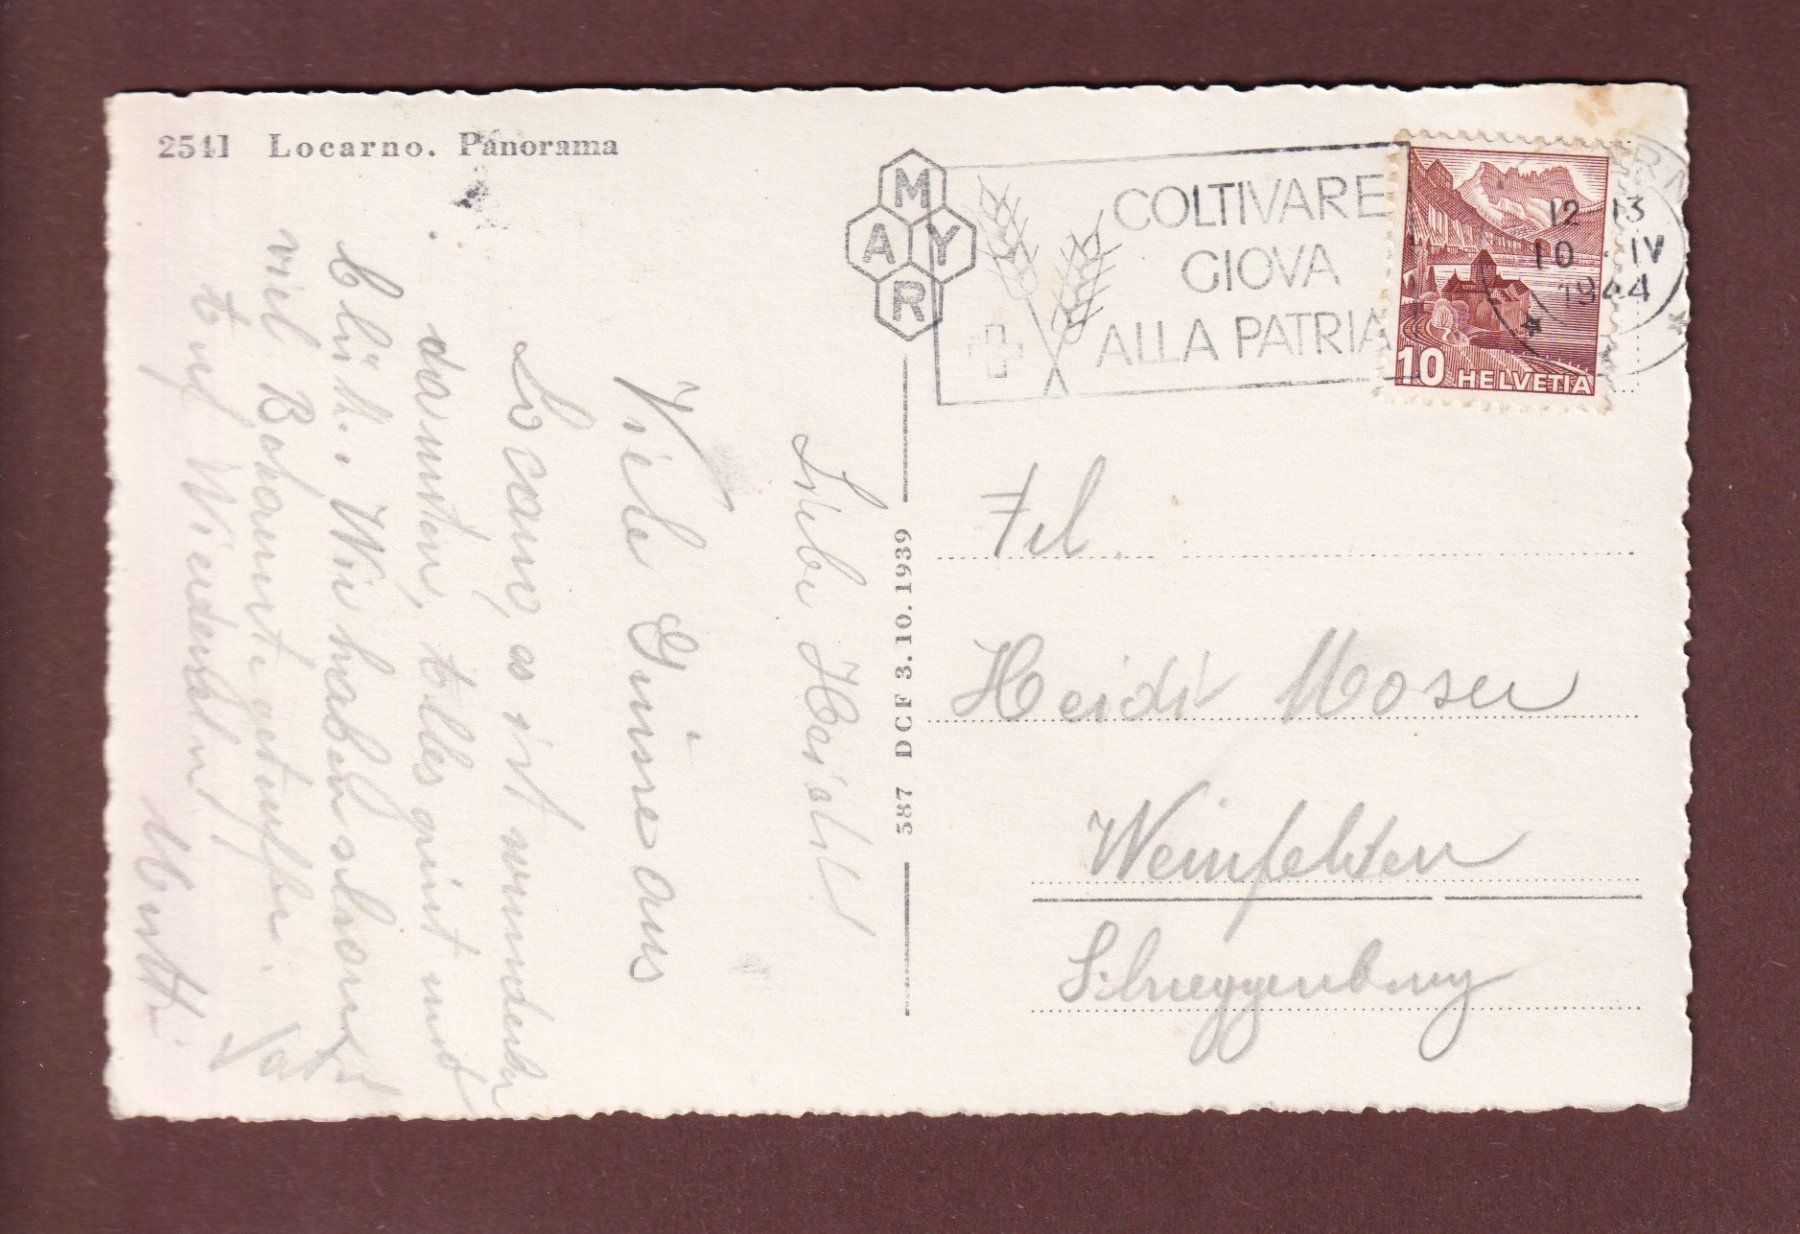 2541 Locarno. Panorama
MAYR
COLTIVARE
GIOVA
ALLA PATRIA
12 13
10 IV
1944
10 HELVETIA
587 DCF 3.10.1939
Liebe Heidi!
Viele Grüsse aus
Locarno, es ist wunderbar
darunten, alles grünt und
blüht. Wir haben schon
viel Bekannte getroffen.
Auf Wiedersehn!
Frl.
Heidi Moser
Weinfelden